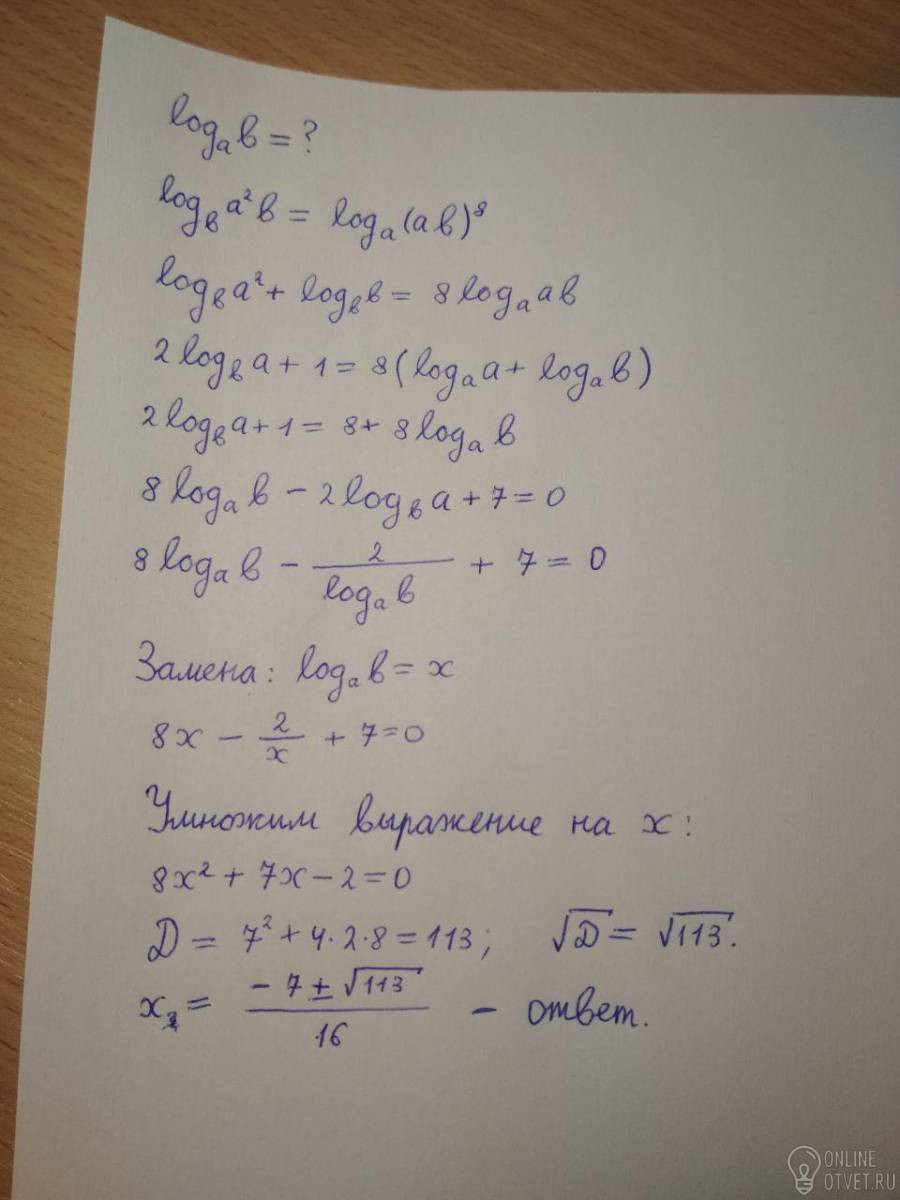 logₐb = ?
log_b a²b = logₐ(ab)⁸
log_b a² + log_b b = 8 logₐ ab
2 log_b a + 1 = 8(logₐ a + logₐ b)
2 log_b a + 1 = 8 + 8 logₐ b
8 logₐ b − 2 log_b a + 7 = 0
8 logₐ b − 2/(logₐ b) + 7 = 0
Замена: logₐ b = x
8x − 2/x + 7 = 0
Умножим выражение на x:
8x² + 7x − 2 = 0
D = 7² + 4·2·8 = 113; √D = √113.
x = (−7 ± √113)/16 − ответ.
ONLINE
OTVET.RU